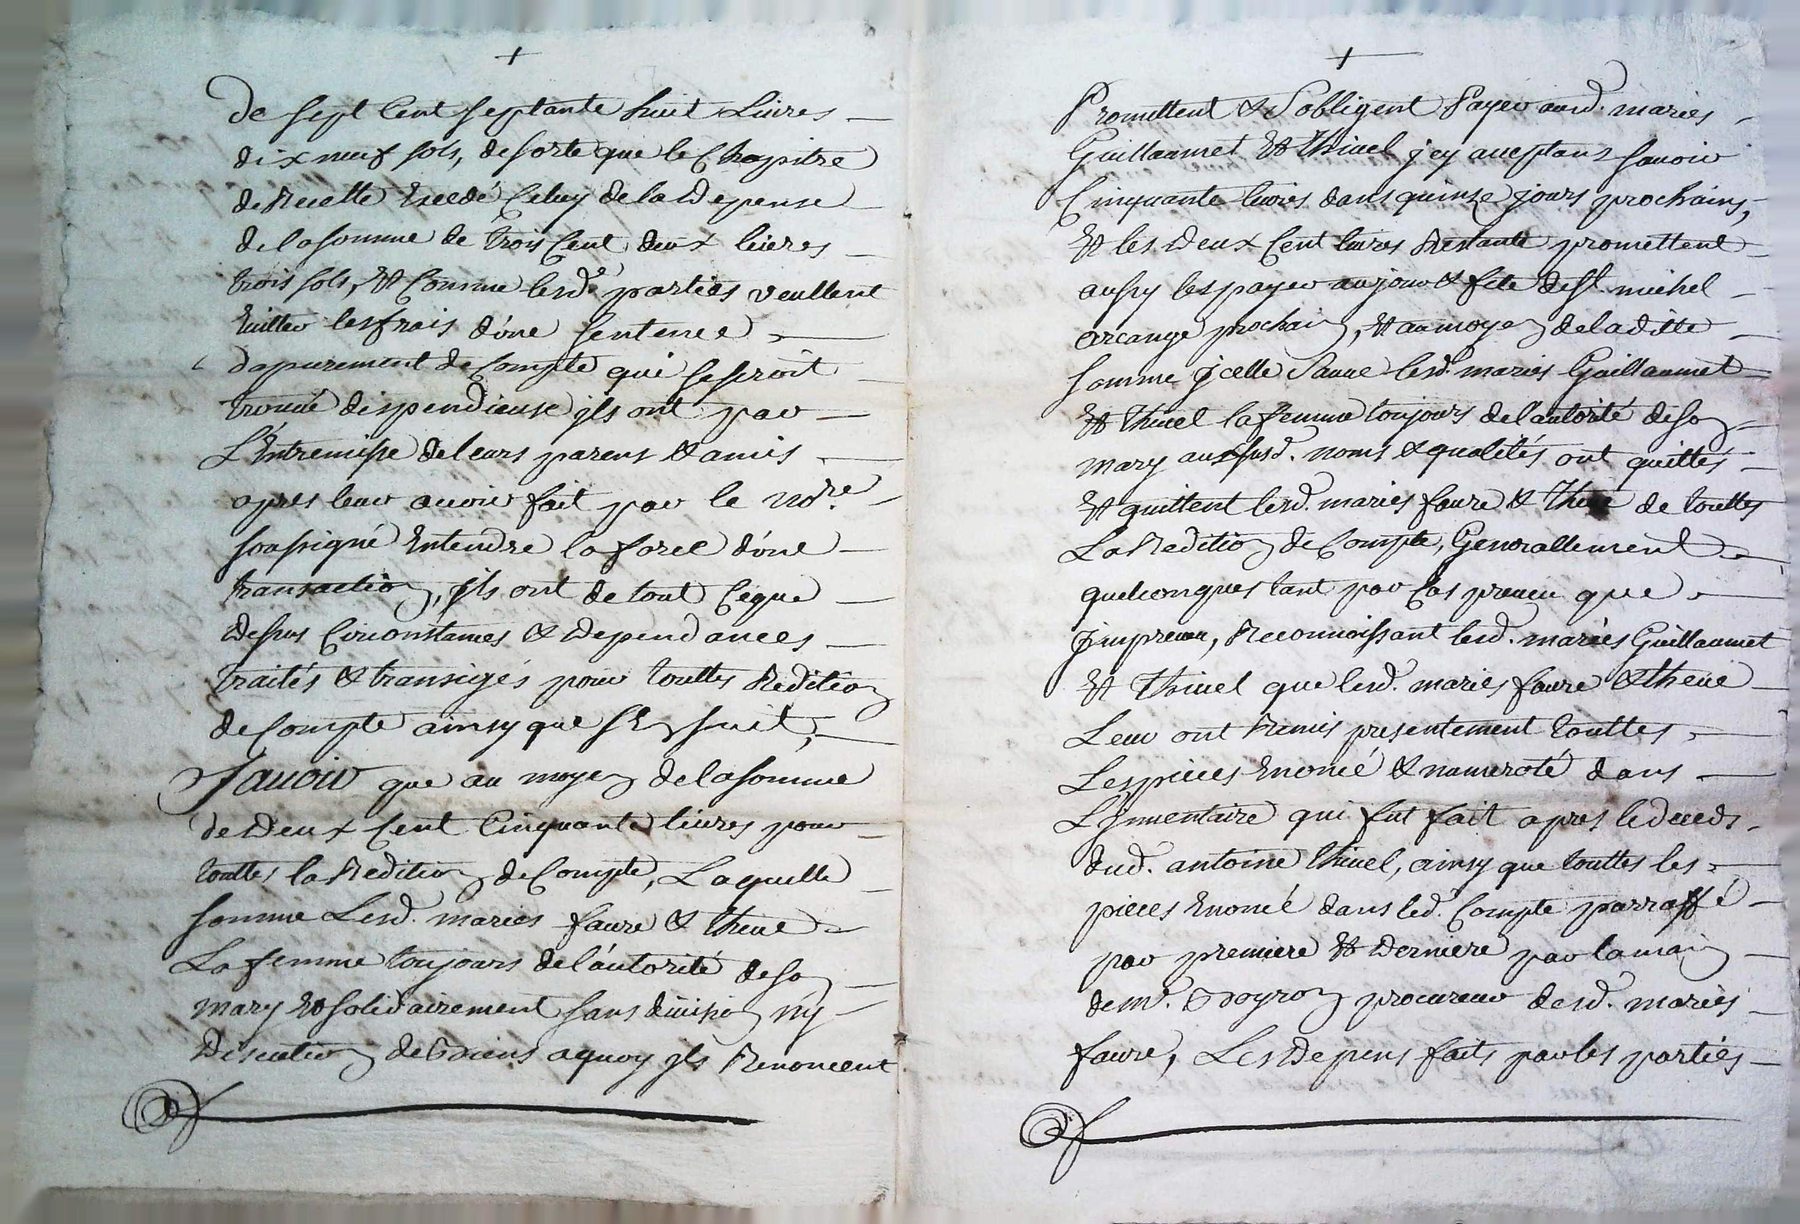 +
De sept Cent septante huit Livres
dix neuf sols, desorte que le Chapitre
de Recette Excedé Celuy de la Depense
de la somme de trois Cent deux livres
trois sols, Et Comme lesd.es parties veullent
Eviter les frais d'une sentence
d'apurement de Compte qui se seroit
trouvé dispendieuse ils ont par
L'Entremise de leurs parens & amis
apres leur avoir fait par le No.re
soussigné Entendre la force d'une
transaction, ils ont de tout Ceque
dessus Circonstances & Dependances
traités & transigés pour touttes Redition
de Compte ainsy que s'En suit,
Savoir que au moyen de la somme
de Deux Cent Cinquante livres pour
touttes la Redition de Compte, Laquelle
somme Lesd. mariés faure & theve
La femme toujours de l'autorité de son
mary Et solidairement sans division ny
Discution de Biens aquoy ils Renoncent
+
Promettent & S'obligent Payer ausd. mariés
Guillaumet Et thivel jcy acceptans savoir
Cinquante livres dans quinze jours prochains,
Et les Deux Cent livres Restante promettent
aussy les payer au jour & fete de St. michel
arcange prochain, Et au moyen de la ditte
somme jcelle Sauve lesd. mariés Guillaumet
Et thivel la femme toujours de l'autorité de son
mary aux susd. noms & qualités ont quittés
Et quittent lesd. mariés faure & theve de touttes
La Redition de Compte, Generallement
quelconques tant par Cas preveu que
jmpreveu, Reconnoissant lesd. mariés Guillaumet
Et thivel que lesd. mariés faure & theve
Leur ont Remis presentement touttes
Les pieces Enoncé & numeroté dans
L'Jnventaire qui fut fait apres le deceds
dud. antoine thivel, ainsy que touttes les
pieces Enoncé dans led. Compte parraffé
par premiere Et Derniere par la main
de m.e Doyron procureur desd. mariés
faure, Les Depens faits par les parties